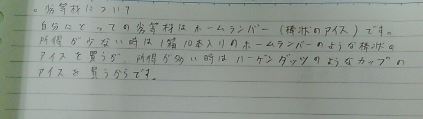 。劣等材について
自分にとっての劣等材はホームランバー(棒状のアイス)です。
所得が少ない時は1箱10本入りのホームランバーのような棒状の
アイスを買うが、所得が多い時はハーゲンダッツのようなカップの
アイスを買うからです。